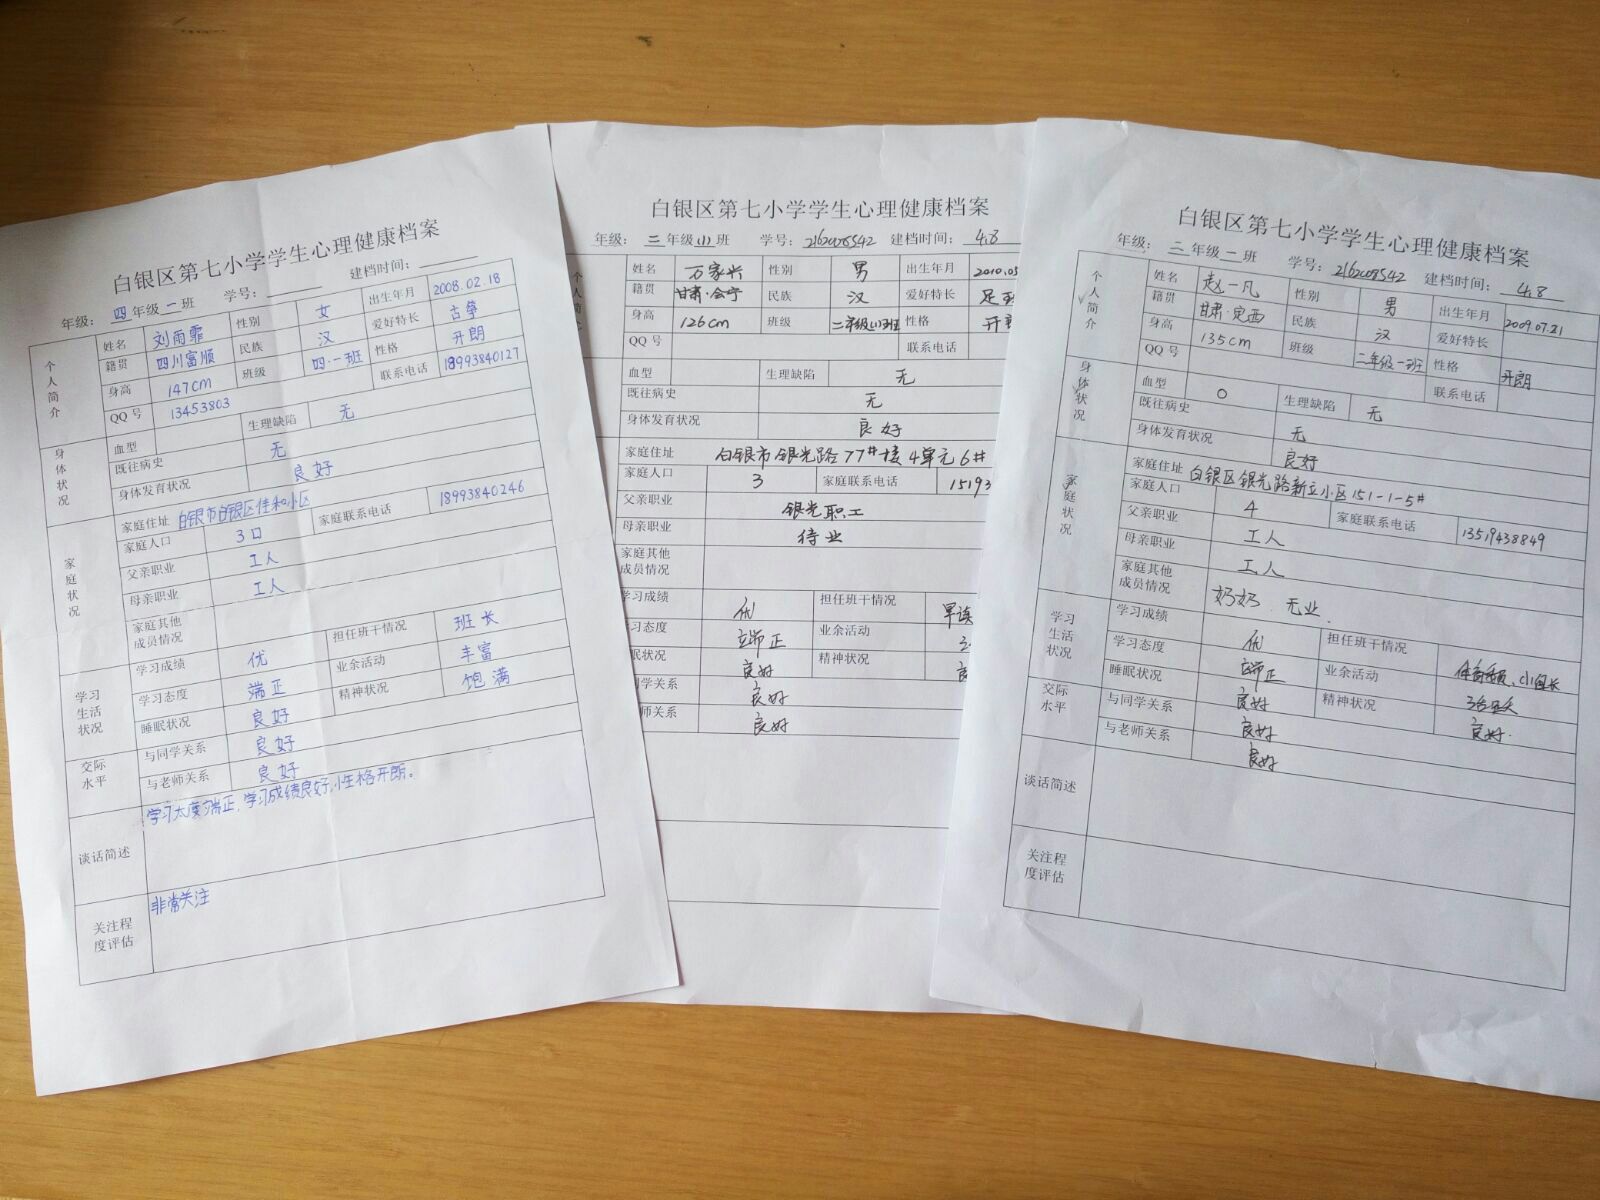 白银区第七小学学生心理健康档案
年级: 四 年级 一 班 学号: 建档时间:
个人简介
姓名 刘雨霏 性别 女 出生年月 2008.02.18
籍贯 四川富顺 民族 汉 爱好特长 古筝
身高 147cm 班级 四·一班 性格 开朗
QQ号 13453803 联系电话 18993840127
身体状况
血型 生理缺陷 无
既往病史 无
身体发育状况 良好
家庭状况
家庭住址 白银市白银区佳和小区
家庭人口 3口 家庭联系电话 18993840246
父亲职业 工人
母亲职业 工人
家庭其他成员情况
学习生活状况
学习成绩 优 担任班干情况 班长
学习态度 端正 业余活动 丰富
睡眠状况 良好 精神状况 饱满
交际水平
与同学关系 良好
与老师关系 良好
谈话简述 学习太度端正,学习成绩良好,性格开朗。
关注程度评估 非常关注
白银区第七小学学生心理健康档案
年级: 二 年级(1)班 学号: 2162008542 建档时间: 4.8
姓名 万家兴 性别 男 出生年月 2010.05
籍贯 甘肃·会宁 民族 汉 爱好特长 足
身高 126cm 班级 二年级(1)班 性格 开
QQ号 联系电话
血型 生理缺陷 无
既往病史 无
身体发育状况 良好
家庭住址 白银市银光路77#楼4单元6#
家庭人口 3 家庭联系电话 15193
父亲职业 银光职工
母亲职业 待业
家庭其他成员情况
学习成绩 优 担任班干情况 早读
习态度 端正 业余活动
眠状况 良好 精神状况 良
同学关系 良好
师关系 良好
白银区第七小学学生心理健康档案
年级: 二 年级 一 班 学号: 2162008542 建档时间: 4.8
个人简介
姓名 赵一凡 性别 男 出生年月 2009.07.21
籍贯 甘肃·定西 民族 汉 爱好特长
身高 135cm 班级 二年级一班 性格 开朗
QQ号 联系电话
身体状况
血型 O 生理缺陷 无
既往病史 无
身体发育状况 良好
家庭状况
家庭住址 白银区银光路新立小区151-1-5#
家庭人口 4 家庭联系电话 13519438849
父亲职业 工人
母亲职业 工人
家庭其他成员情况 奶奶 无业.
学习生活状况
学习成绩 优 担任班干情况
学习态度 端正 业余活动
睡眠状况 良好 精神状况 良好.
交际水平
与同学关系 良好
与老师关系 良好
谈话简述
关注程度评估